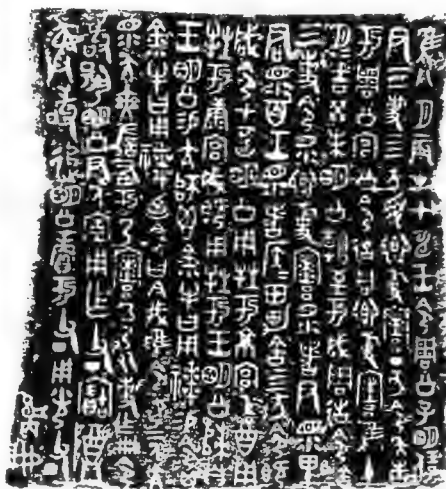 隹八月辰才甲申王令周公子明保
尹三事四方受卿事寮丁亥令夨告
于周公宮公令𢓊同卿事寮隹十月
月吉癸未明公朝至于成周𢓊令舍
三事令眔卿事寮眔者尹眔里
君眔百工眔者𥎦𥎦田男舍四方令既
咸令甲申明公用牲于京宮乙酉用
牲于康宮咸既用牲于王明公歸自
王明公易亢師鬯金小牛曰用𥛱易令鬯
金小牛曰用𥛱廼令曰今我唯令女二人
亢眔夨奭左右于乃寮以乃友事乍冊令
敢揚明公尹氒宁用乍父丁寶尊
彝敢追明公賞于父丁用光父丁
冊